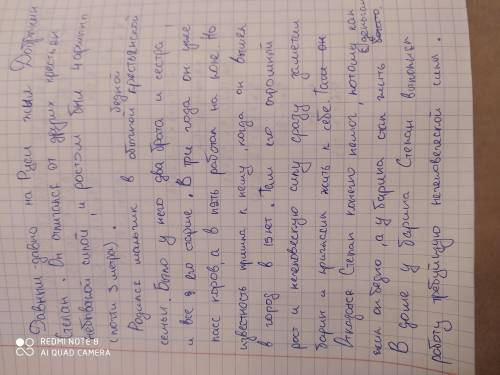 Давным давно на Руси жил Добрыни
Степан. Он отличался от других крестьян
небывалой силой, и ростом был 4 аршина
(почти 3 метра).
Родился мальчик в обычной бедной крестьянской
семьи. Было у него два брата и сестра,
и все его старше. В три года он уже
пасс коров, а в пять работал на поле. Но
известность пришла к нему, когда он выехал
в город в 15 лет. Там его огромный
рост и нечеловескую силу сразу заметил
барин и пригласил жить к себе. Там он
Степан конечно немог, потому как
жил он бедно, а у барина стал жить в деньгах
В доме у барина Степан выполнял
работу требующую нечеловеческой силы.
REDMI NOTE 8
AI QUAD CAMERA